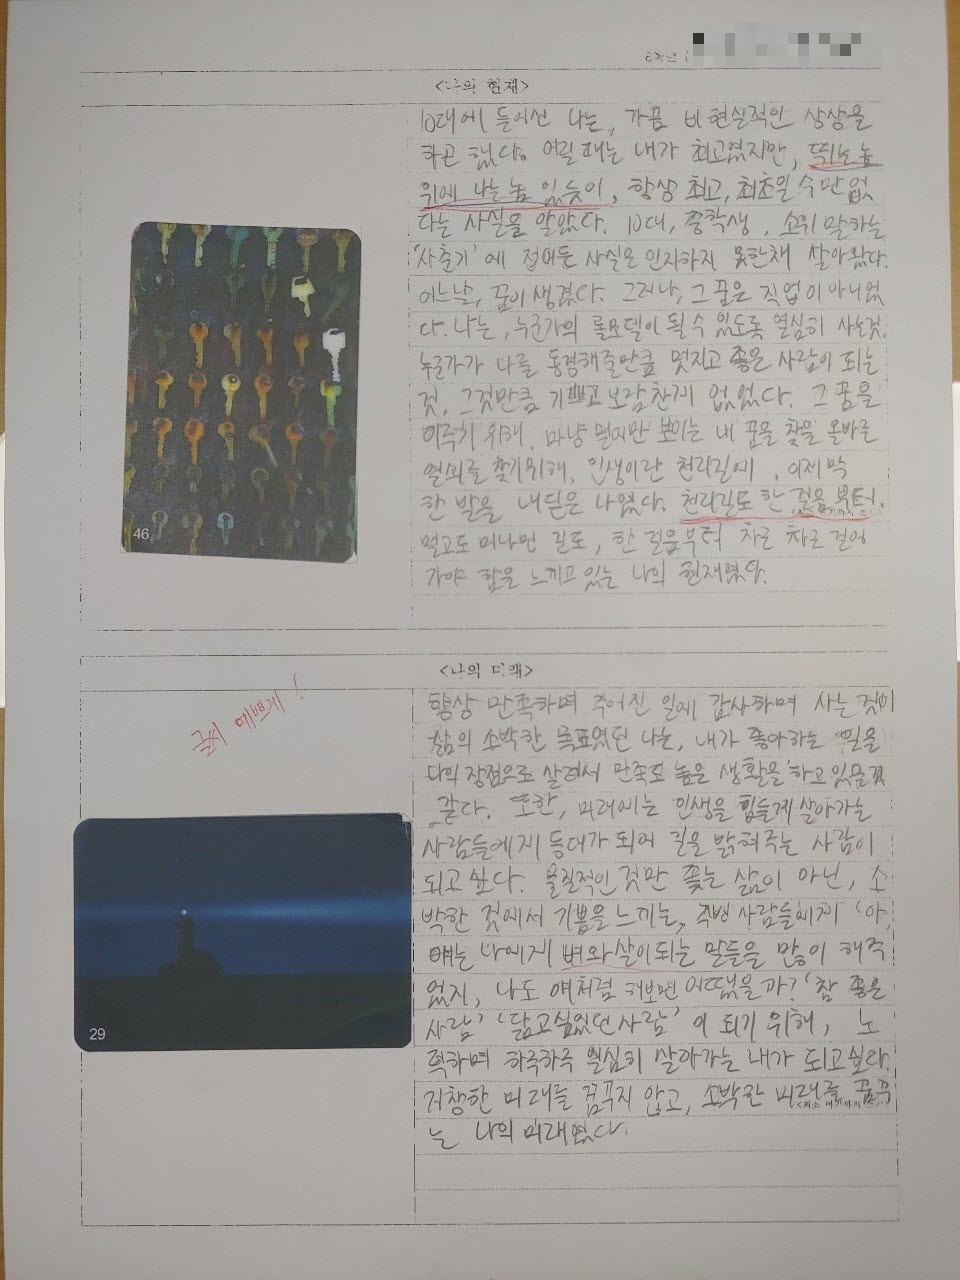 <나의 현재>
10대에 들어선 나는, 가끔 비현실적인 상상을
하곤 했다. 어릴 때는 내가 최고였지만, 뛰는 놈
위에 나는 놈 있듯이, 항상 최고, 최초일 수만 없
다는 사실을 알았다. 10대, 중학생, 소위 말하는
'사춘기'에 접어든 사실은 인지하지 못한채 살아왔다.
어느날, 꿈이 생겼다. 그러나, 그 꿈은 직업이 아니었
다. 나는, 누군가의 롤모델이 될 수 있도록 열심히 사는것.
누군가가 나를 동경해줄만큼 멋지고 좋은 사람이 되는
것. 그것만큼 기쁘고 보람찬게 없었다. 그 꿈을
이루기 위해, 마냥 멀지만 보이는 내 꿈을 찾을 올바른
열쇠를 찾기위해, 인생이란 천리길에, 이제 막
한 발을 내딛은 나였다. 천리길도 한 걸음 부터.
멀고도 머나먼 길도, 한 걸음부터 차근 차근 걸어
가야 함을 느끼고 있는 나의 현재였다.
46
<나의 미래>
글씨 예쁘게!
항상 만족하며 주어진 일에 감사하며 사는 것이
삶의 소박한 목표였던 나는, 내가 좋아하는 일을
나의 장점으로 살려서 만족도 높은 생활을 하고 있을것
같다. 또한, 미래에는 인생을 힘들게 살아가는
사람들에게 등대가 되어 길을 밝혀주는 사람이
되고 싶다. 물질적인 것만 쫓는 삶이 아닌, 소
박한 것에서 기쁨을 느끼는, 주변 사람들에게 '아,
얘는 나에게 뼈와 살이 되는 말들을 많이 해주
었지, 나도 얘처럼 해보면 어땠을까?' '참 좋은
사람' '닮고싶었던 사람'이 되기 위해, 노
력하며 하루하루 열심히 살아가는 내가 되고 싶다.
거창한 미래를 꿈꾸지 않고, 소박한 미래를 꿈꾸
는 나의 미래였다.
29